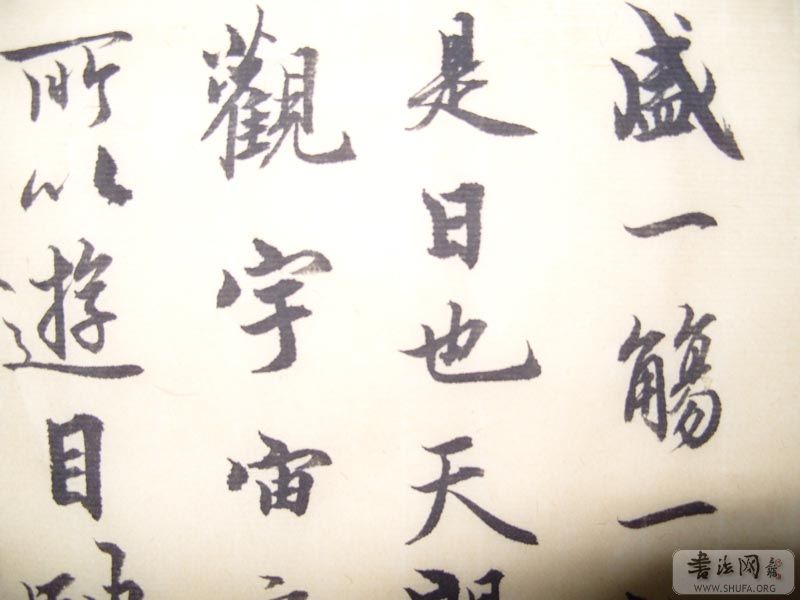 盛一觴一
是日也天朗
觀宇宙之
所以遊目騁
書法网
WWW.SHUFA.ORG